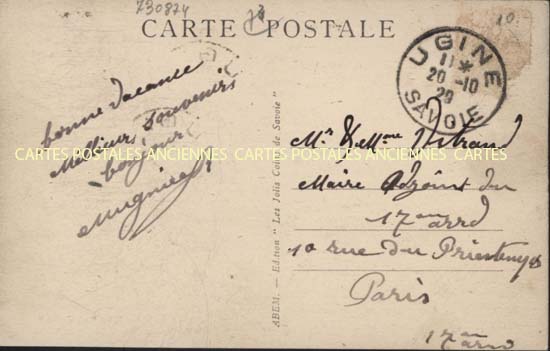 730874
10
CARTE POSTALE
UGINE
11 *
20 -10
29
SAVOIE
bonne vacance
Meilleurs souvenirs
bonjour
Mugnier
ABEM. — Edition " Les Jolis Coins de Savoie "
CARTES POSTALES ANCIENNES CARTES POSTALES ANCIENNES CARTES
Mr & Mme
Maire Adjoint du
17eme arrd
10 rue du
Paris
17em arrd